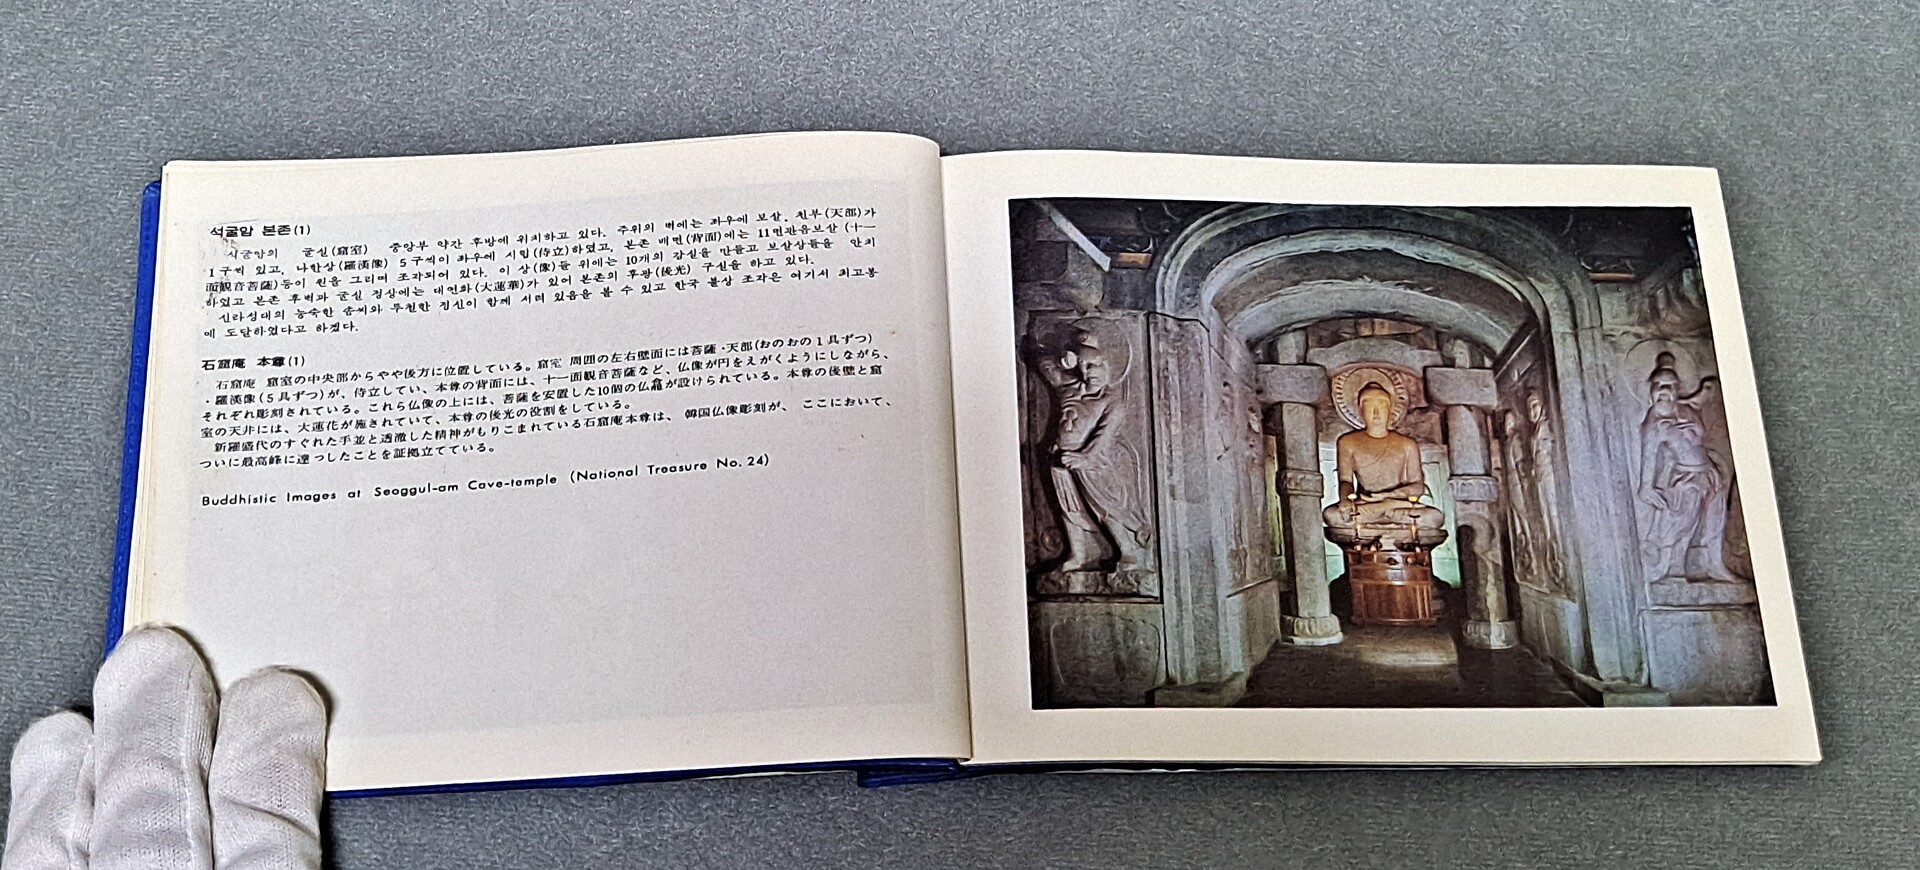 석굴암 본존(1)
석굴암의 굴실(窟室) 중앙부 약간 후방에 위치하고 있다. 주위의 벽에는 좌우에 보살, 천부(天部)가
1구씩 있고, 나한상(羅漢像) 5구씩이 좌우에 시립(侍立)하였고, 본존 배면(背面)에는 11면관음보살(十一
面観音菩薩)등이 원을 그리며 조각되어 있다. 이 상(像)들 위에는 10개의 감실을 만들고 보살상들을 안치
하였고 본존 후벽과 굴실 정상에는 대연화(大蓮華)가 있어 본존의 후광(後光) 구실을 하고 있다.
신라성대의 능숙한 솜씨와 투철한 정신이 함께 서려 있음을 볼 수 있고 한국 불상 조각은 여기서 최고봉
에 도달하였다고 하겠다.
石窟庵 本尊(1)
石窟庵 窟室の中央部からやや後方に位置している。窟宅 周囲の左右壁面には菩薩・天部(おのおの1具ずつ)
・羅漢像(5具ずつ)が、侍立してい、本尊の背面には、十一面観音菩薩など、仏像が円をえがくようにしながら、
それぞれ彫刻されている。これら仏像の上には、菩薩を安置した10個の仏龕が設けられている。本尊の後壁と窟
室の天井には、大蓮花が施されていて、本尊の後光の役割をしている。
新羅盛代のすぐれた手並と透澈した精神がもりこまれている石窟庵本尊は、韓国仏像彫刻が、ここにおいて、
ついに最高峰に達っしたことを証拠立てている。
Buddhistic Images at Seoggul-am Cave-temple (National Treasure No. 24)